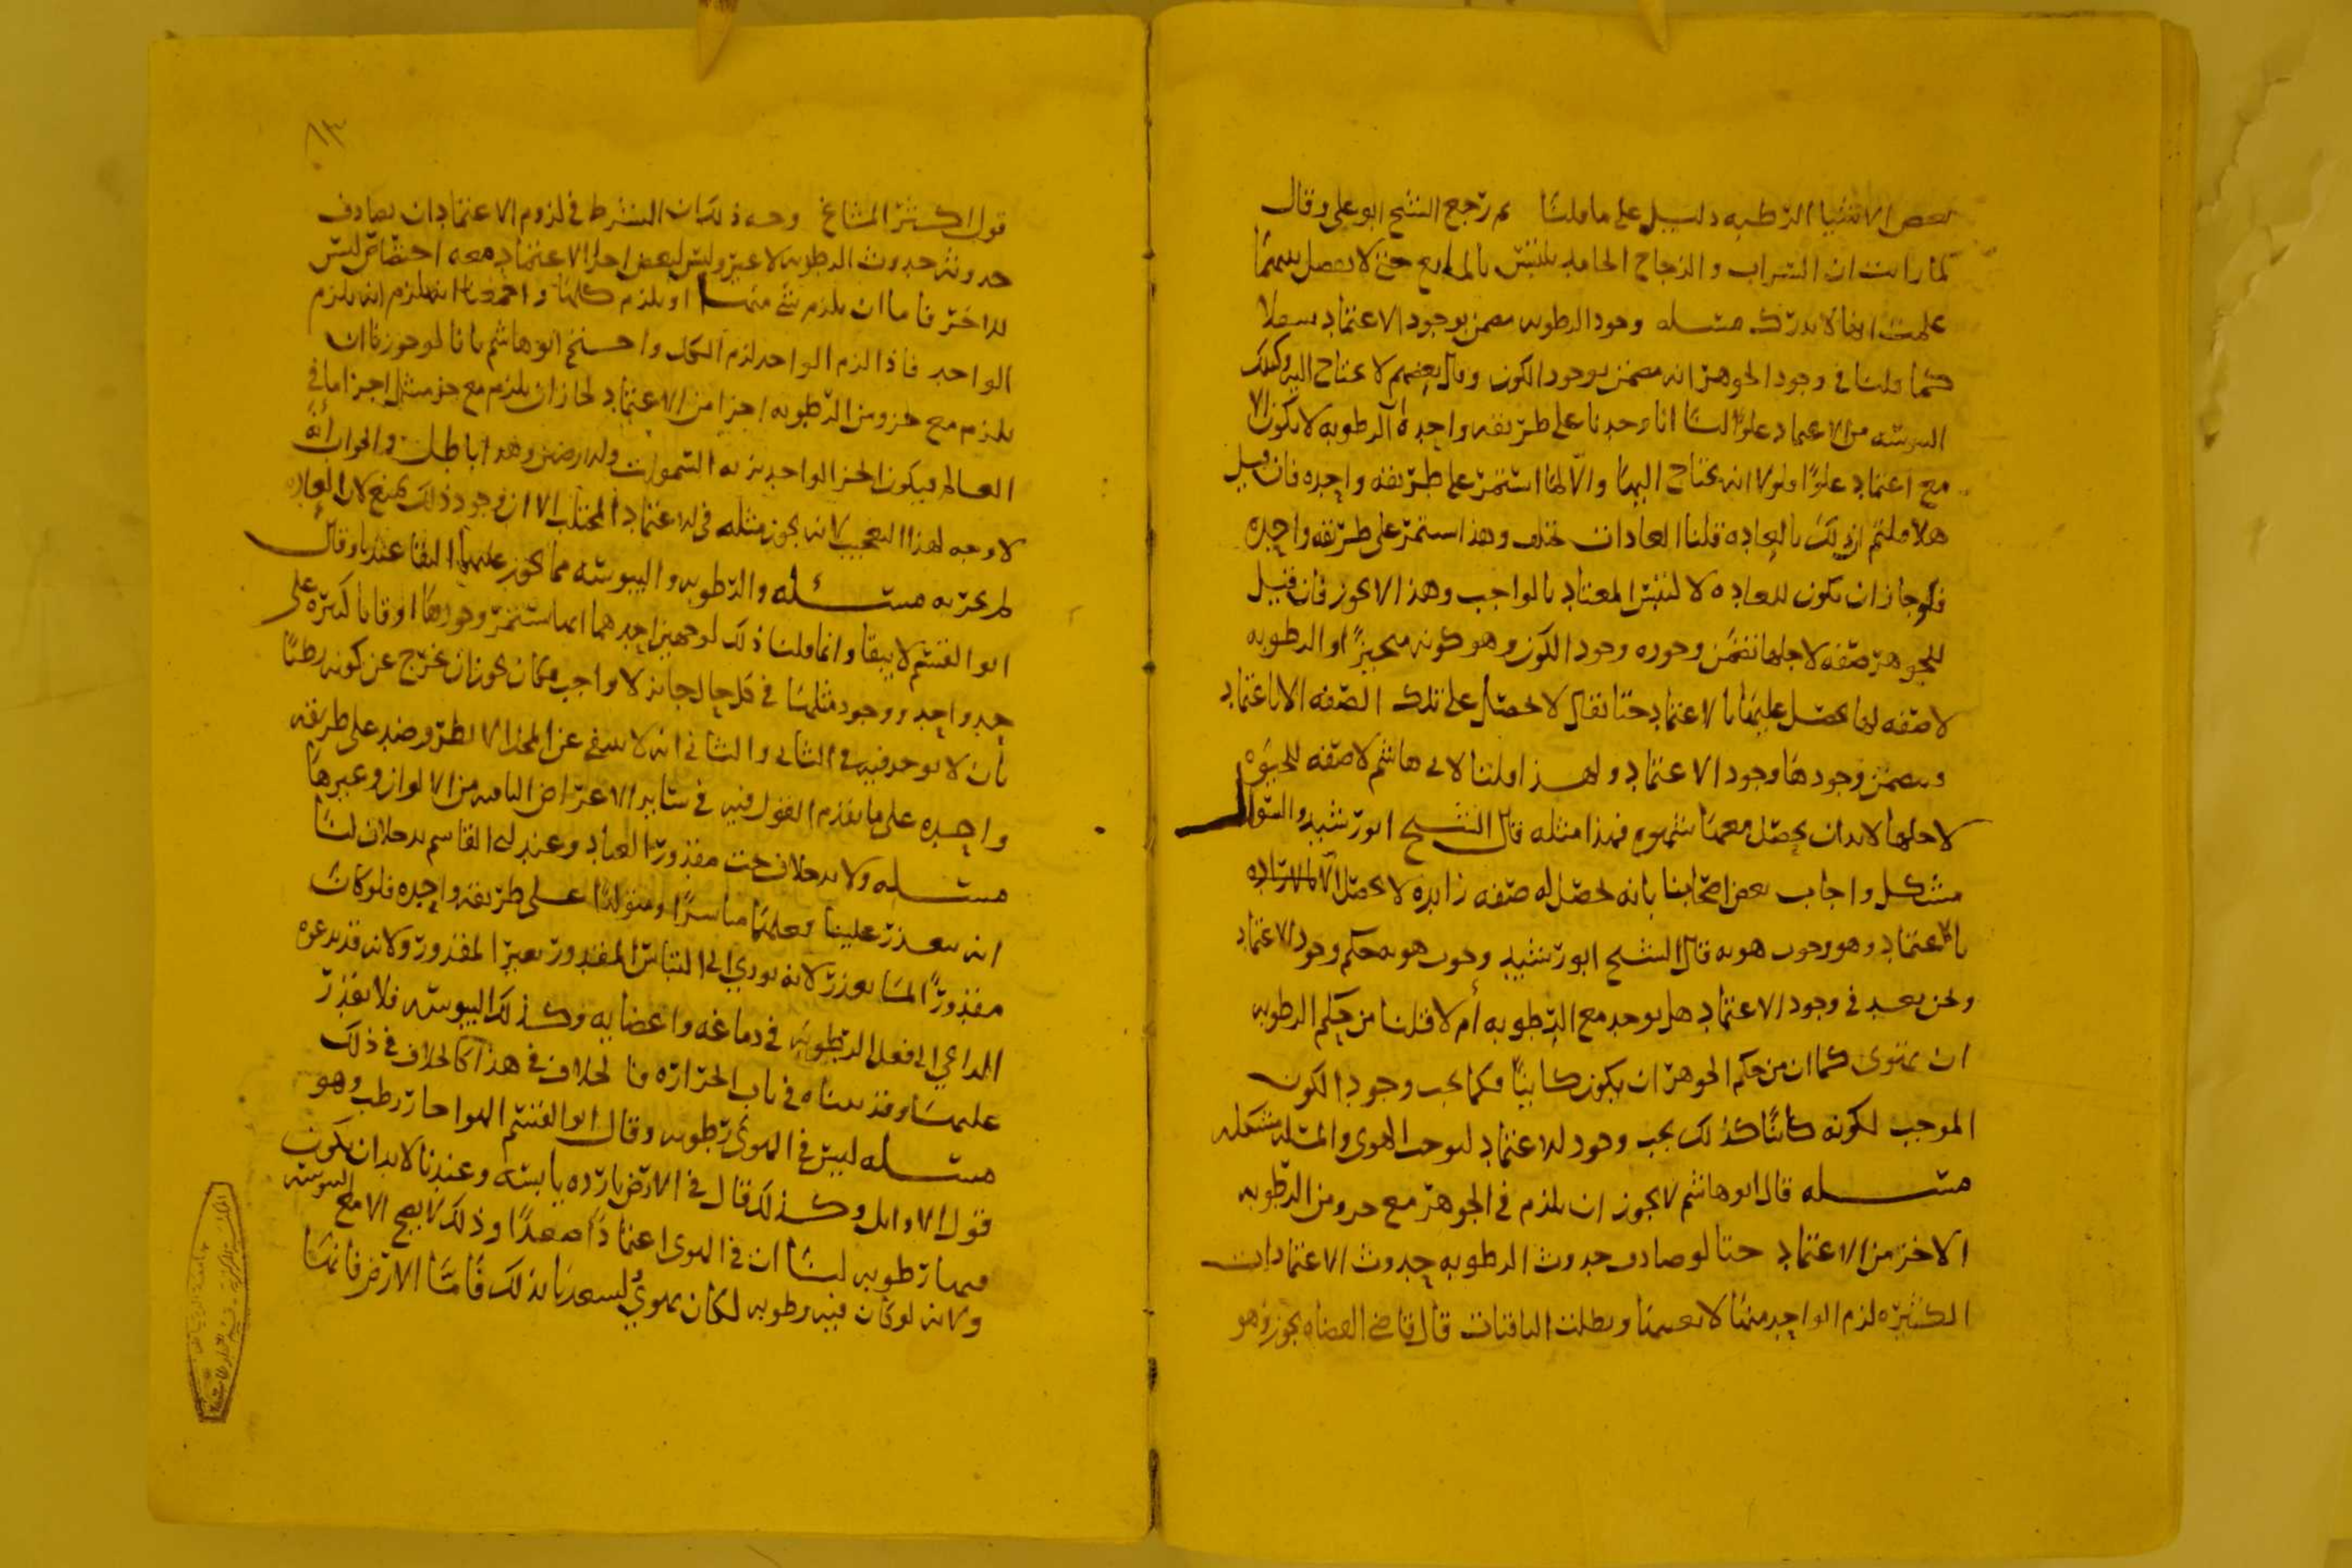 بعض الاشيا الرطبه دليل على ما قلنا ثم رجع الشيخ ابو علي وقال
لما رايت ان السراب والزجاج الجامد يلتبس بالمايع حتى لا يفصل بينهما
علمت انها لا تدرك مسله وجود الرطوبه مضمن بوجود الاعتماد سفلا
كما قلنا في وجود الجوهر انه مضمن بوجود الكون وقال بعضهم لا يحتاج اليه وكذلك
اليبوسه من الاعتماد علوا لنا انا وجدنا على طريقه واحده الرطوبه لا تكون الا
مع اعتماد علوا ولولا انه يحتاج اليها والا لما استمر على طريقه واحده فان قيل
هلا قلتم ان ذلك بالعاده قلنا العادات تختلف وهذا استمر على طريقه واحده
فلو جاز ان تكون للعاده لالتبس المعتاد بالواجب وهذا لا يجوز فان قيل
للجوهر صفه لاجلها تضمن وجوده وجود الكون وهو كونه متحيزا والرطوبه
لا صفه لها يحصل عليها بالاعتماد حتا يقال لا تحصل على تلك الصفه الا باعتماد
ويضمن وجودها وجود الاعتماد ولهذا قلنا لابي هاشم لا صفه للحيوه
لاجلها لا بد ان يحصل معها شهوه فهذا مثله قال الشيخ ابو رشيد والسوال
مشكل واجاب بعض اصحابنا بانه تحصل له صفه زايده لا تحصل الا
بالاعتماد وهو وجوب هويه قال الشيخ ابو رشيد وجوب هويه حكم وجود الاعتماد
ونحن بعد في وجود الاعتماد هل يوجد مع الرطوبه أم لا قلنا من حكم الرطوبه
ان يهوى كما ان من حكم الجوهر ان يكون كاينا فكما يجب وجود الكون
الموجب لكونه كائنا كذلك يجب وجود الاعتماد ليوجب الهوى والمسله مشكله
مسله قال ابو هاشم لا يجوز ان يلزم في الجوهر مع جزو من الرطوبه
الا جزء من الاعتماد حتا لو صادف حدوث الرطوبه حدوث الاعتمادات
الكثيره لزم الواحد منها لا بعينها وبطلت الباقيات قال قاضي القضاه يجوز وهو
قول اكثر المشايخ وجه ذلك ان الشرط في لزوم الاعتماد ان يصادف
حدوثه حدوث الرطوبه لا غير وليس لبعض اجزا الاعتماد معه اختصاص ليس
للاخر فاما ان يلزم شي منها او يلزم كلها واجمعنا انه يلزم
الواحد فاذا لزم الواحد لزم الكل واحتج ابو هاشم بانا لو جوزنا ان
يلزم مع جزو من الرطوبه اجزا من الاعتماد لجاز ان يلزم مع جزء مثل اجزا ما في
العالم فيكون الجزء الواحد بزنه السموات والارضين وهذا باطل والجواب أنه
لا وجه لهذا التعجب لانه يجوز مثله في الاعتماد المجتلب الا ان وجود ذلك يمنع لان العاده
لم تجر به مسئله والرطوبه واليبوسه مما يجوز عليها البقا عندنا وقال
ابو القسم لا يبقا وانما قلنا ذلك لوجهين احدهما انها استمر وجودها اوقاتا كثيره على
حد واحد ووجود مثلها في كل حال جايز لا واجب فكان يجوز ان يخرج عن كونه رطبا
بان لا يوجد فيه في الثاني والثاني انه لا ينتفي عن المحل الا بطرو ضد على طريقه
واحده على ما تقدم القول فيه في ساير الاعراض الباقيه من الالوان وغيرها
مسله ولا يدخلان تحت مقدور العباد وعند ابي القاسم يدخلان لنا
انه يتعذر علينا فعلهما مباشرا ومتولدا على طريقه واحده فلو كان
مقدورا لما تعذر لانه يودي الى التباس المقدور بغير المقدور ولانه قد يدعوه
الداعي الى فعل الرطوبه في دماغه واعضايه وكذلك اليبوسه فلا يقدر
عليهما وقد بيناه في باب الحراره فالخلاف في هذا كالخلاف في ذلك
مسله ليس في الهوى رطوبه وقال ابو القسم الهوا حار رطب وهو
قول الاوايل وكذلك قال في الارض بارده يابسه وعندنا لا بد ان يكون
فيها رطوبه لنا ان في الهوى اعتمادا صعدا وذلك لا يصح الا مع اليبوسه
ولانه لو كان فيه رطوبه لكان يهوي لسعدنا بذلك فأما الارض فانها